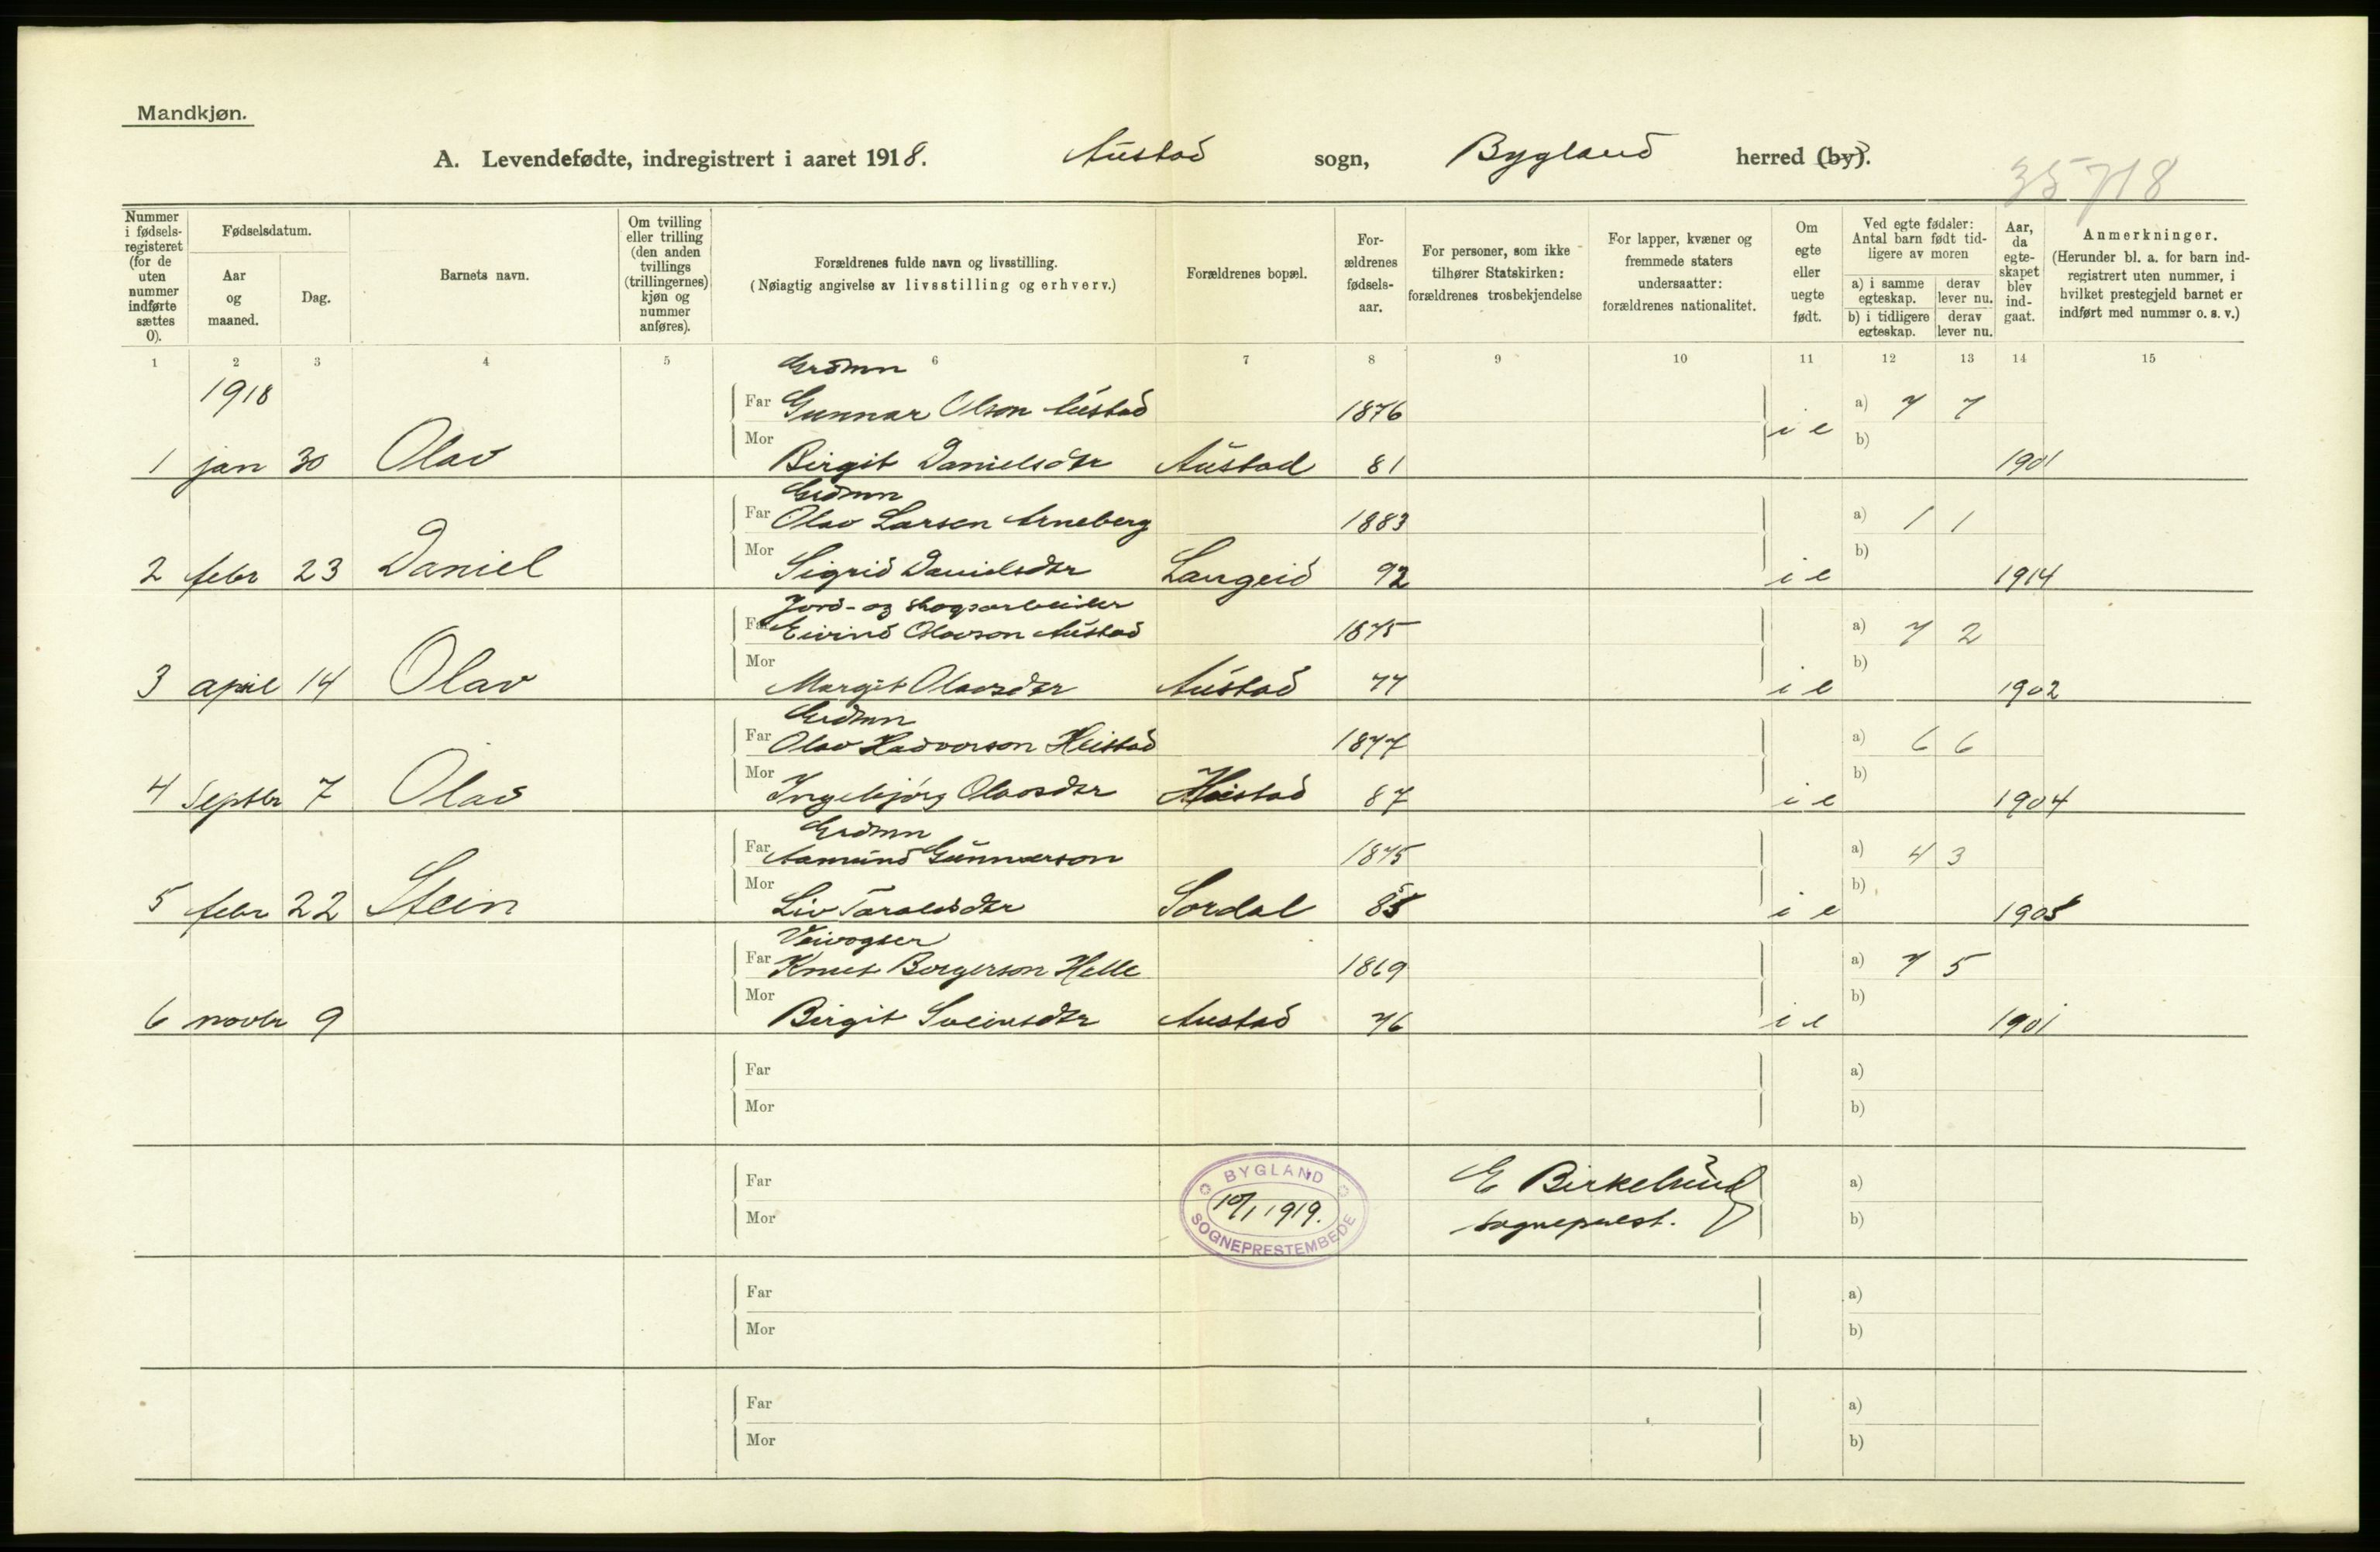 Mandkjøn.
A. Levendefødte, indregistrert i aaret 1918. Austad sogn, Bygland herred (by).
35718
Nummer i fødselsregisteret (for de uten nummer indførte sættes 0).
Fødselsdatum.
Aar og maaned.
Dag.
Barnets navn.
Om tvilling eller trilling (den anden tvillings (trillingernes) kjøn og nummer anføres).
Forældrenes fulde navn og livsstilling.
(Nøiagtig angivelse av livsstilling og erhverv.)
Forældrenes bopæl.
Forældrenes fødselsaar.
For personer, som ikke tilhører Statskirken: forældrenes trosbekjendelse
For lapper, kvæner og fremmede staters undersaatter: forældrenes nationalitet.
Om egte eller uegte født.
Ved egte fødsler: Antal barn født tidligere av moren
a) i samme egteskap.
derav lever nu.
b) i tidligere egteskap.
derav lever nu.
Aar, da egteskapet blev indgaat.
Anmerkninger.
(Herunder bl. a. for barn indregistrert uten nummer, i hvilket prestegjeld barnet er indført med nummer o. s. v.)
1 2 3 4 5 6 7 8 9 10 11 12 13 14 15
1918
Grdmn
Far Gunnar Olson Austad 1876 a) 7 7
1 jan 30 Olav Mor Birgit Danielsdtr Austad 81 i e b) 1901
Grdmn
Far Olav Larsen Arneberg 1883 a) 1 1
2 febr 23 Daniel Mor Sigrid Danielsdtr Langeid 92 i e b) 1914
Jord- og skogsarbeider
Far Eivind Olavson Austad 1875 a) 7 2
3 april 14 Olav Mor Margit Olavsdtr Austad 77 i e b) 1902
Grdmn
Far Olav Hadvorson Heistad 1877 a) 6 6
4 Septbr 7 Olav Mor Ingebjørg Olavsdtr Heistad 87 i e b) 1904
Grdmn
Far Aamund Gunnarson 1875 a) 4 3
5 febr 22 Stein Mor Liv Taraldsdtr Sordal 85 i e b) 1905
Veivogter
Far Knut Borgerson Helle 1869 a) 7 5
6 novbr 9 Mor Birgit Sveinsdtr Austad 76 i e b) 1901
Far a)
Mor b)
Far a)
Mor b)
BYGLAND
10/1 1919.
SOGNEPRESTEMBEDE
E Birkelund
sogneprest.
Far a)
Mor b)
Far a)
Mor b)